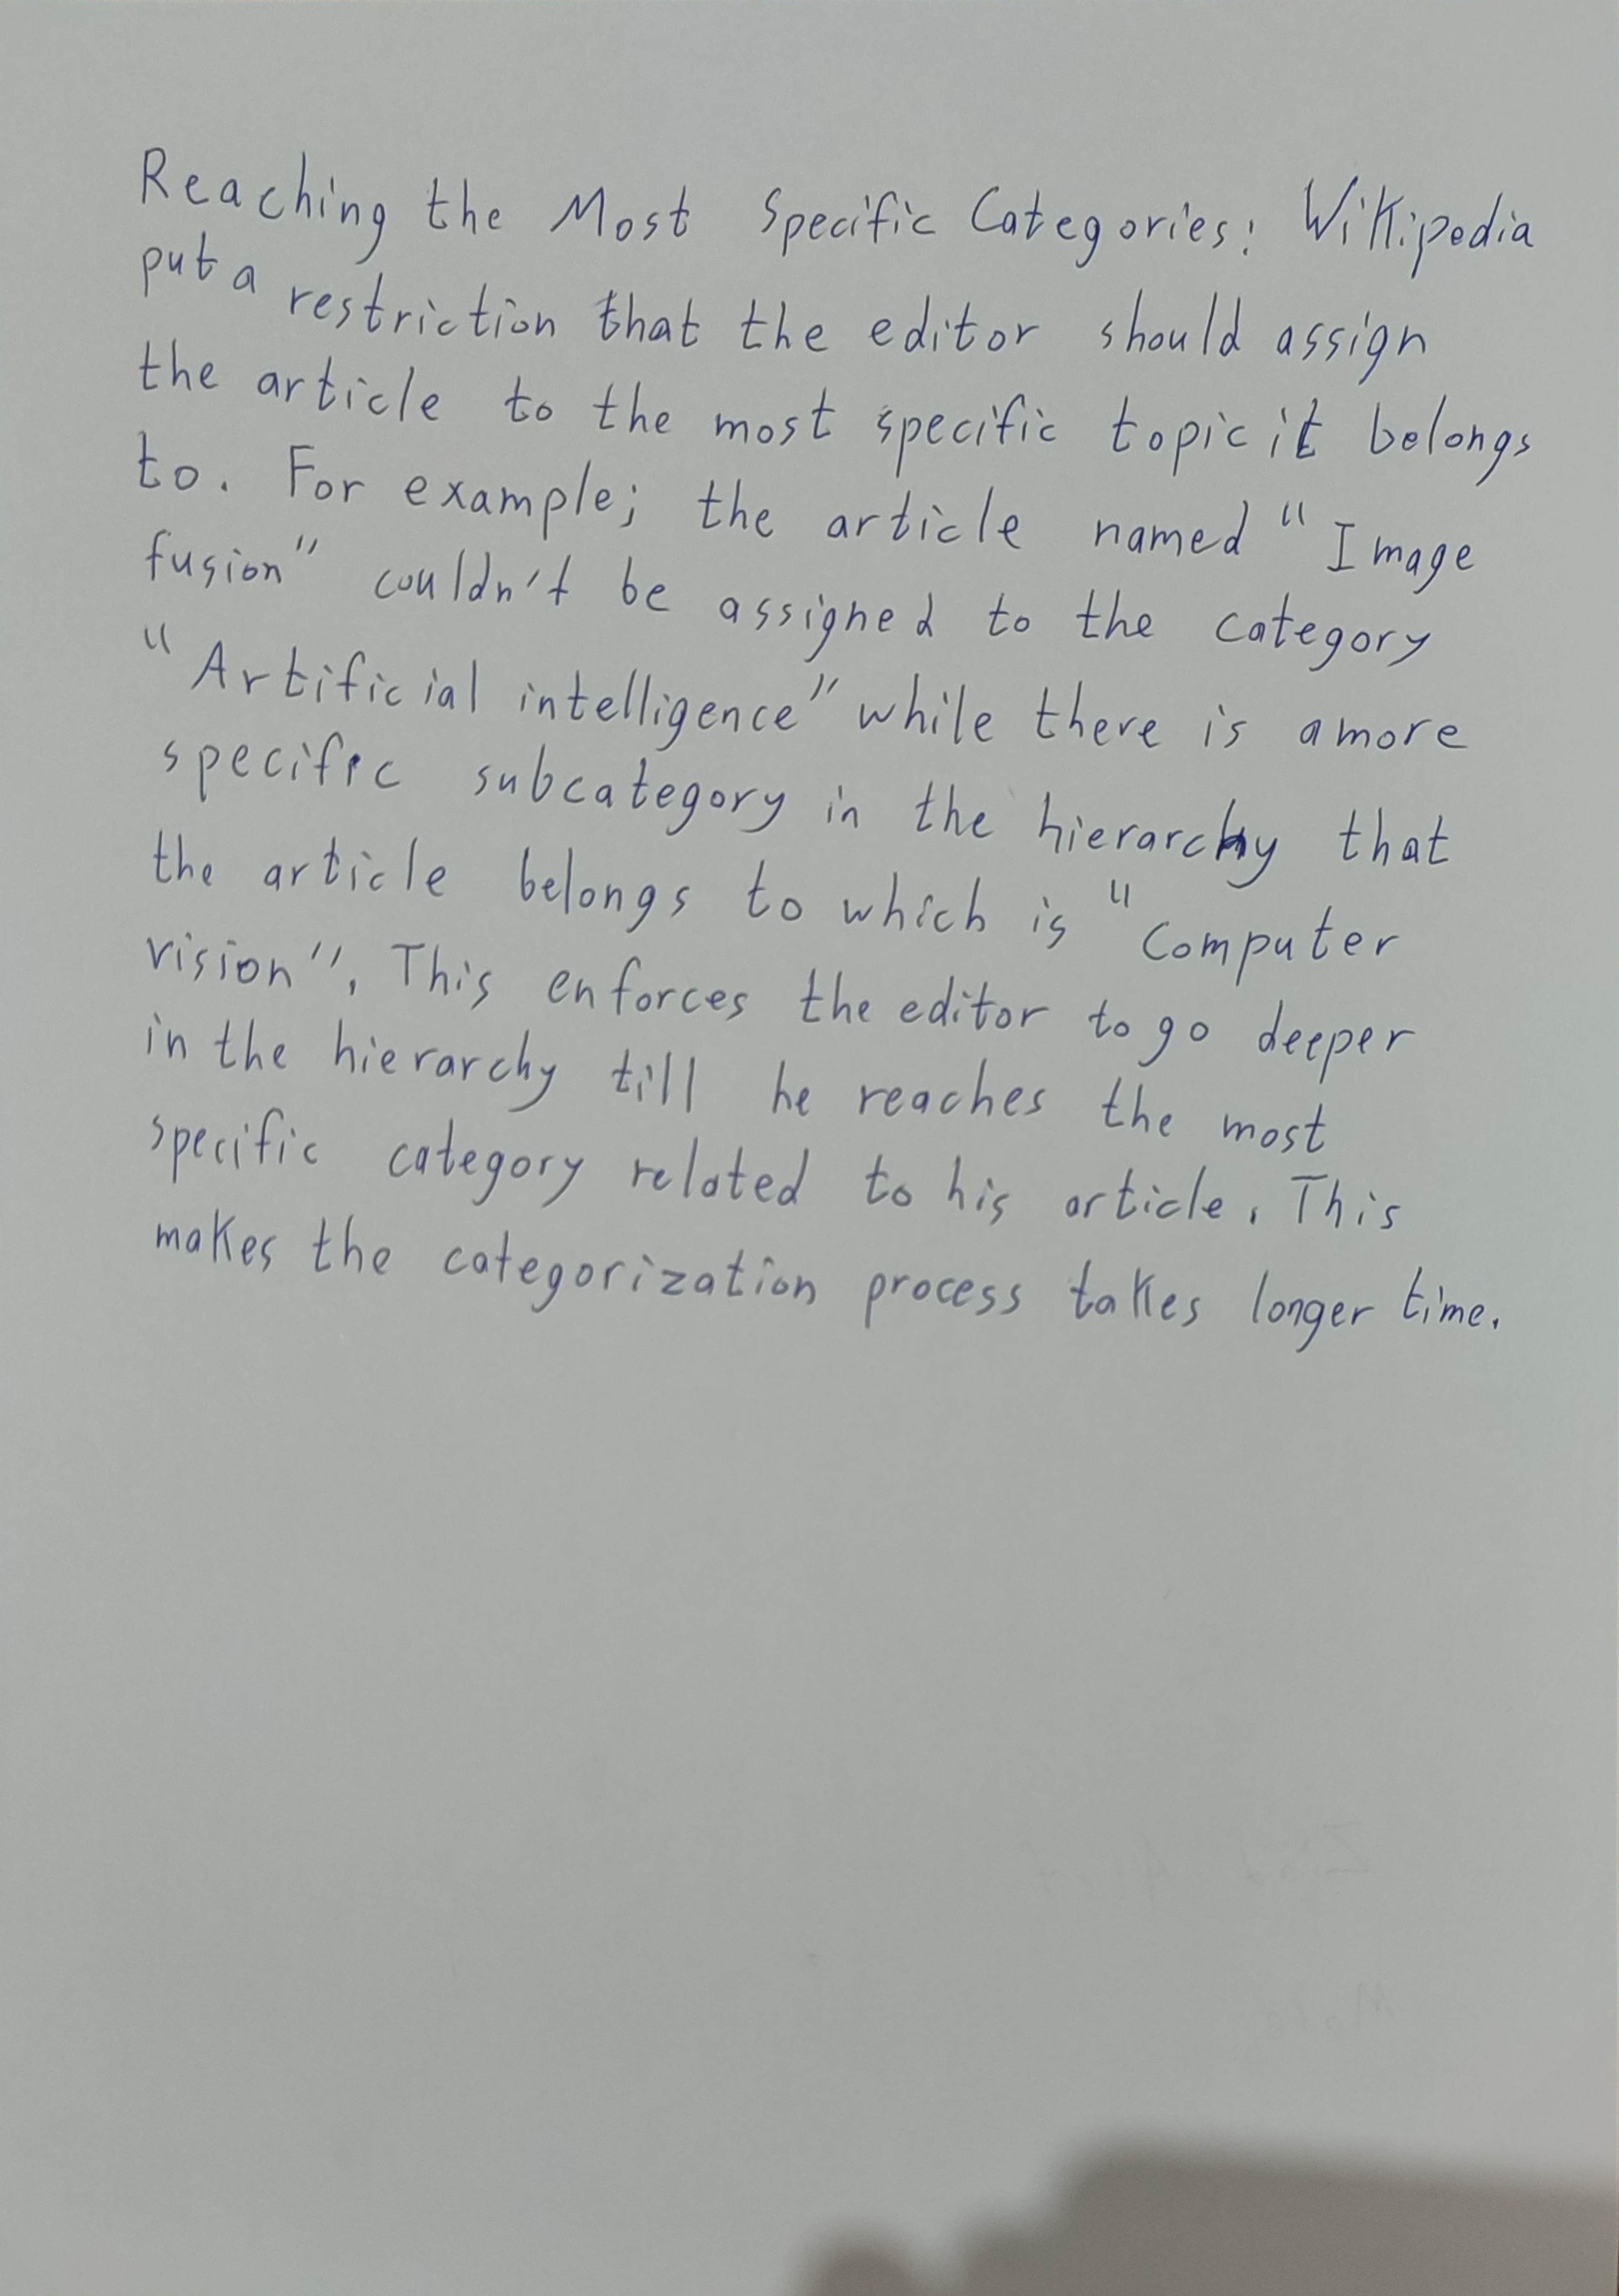 Reaching the Most Specific Categories: Wikipedia
put a restriction that the editor should assign
the article to the most specific topic it belongs
to. For example; the article named "Image
fusion" couldn't be assigned to the category
"Artificial intelligence" while there is a more
specific subcategory in the hierarchy that
the article belongs to which is "Computer
vision". This enforces the editor to go deeper
in the hierarchy till he reaches the most
specific category related to his article. This
makes the categorization process takes longer time.